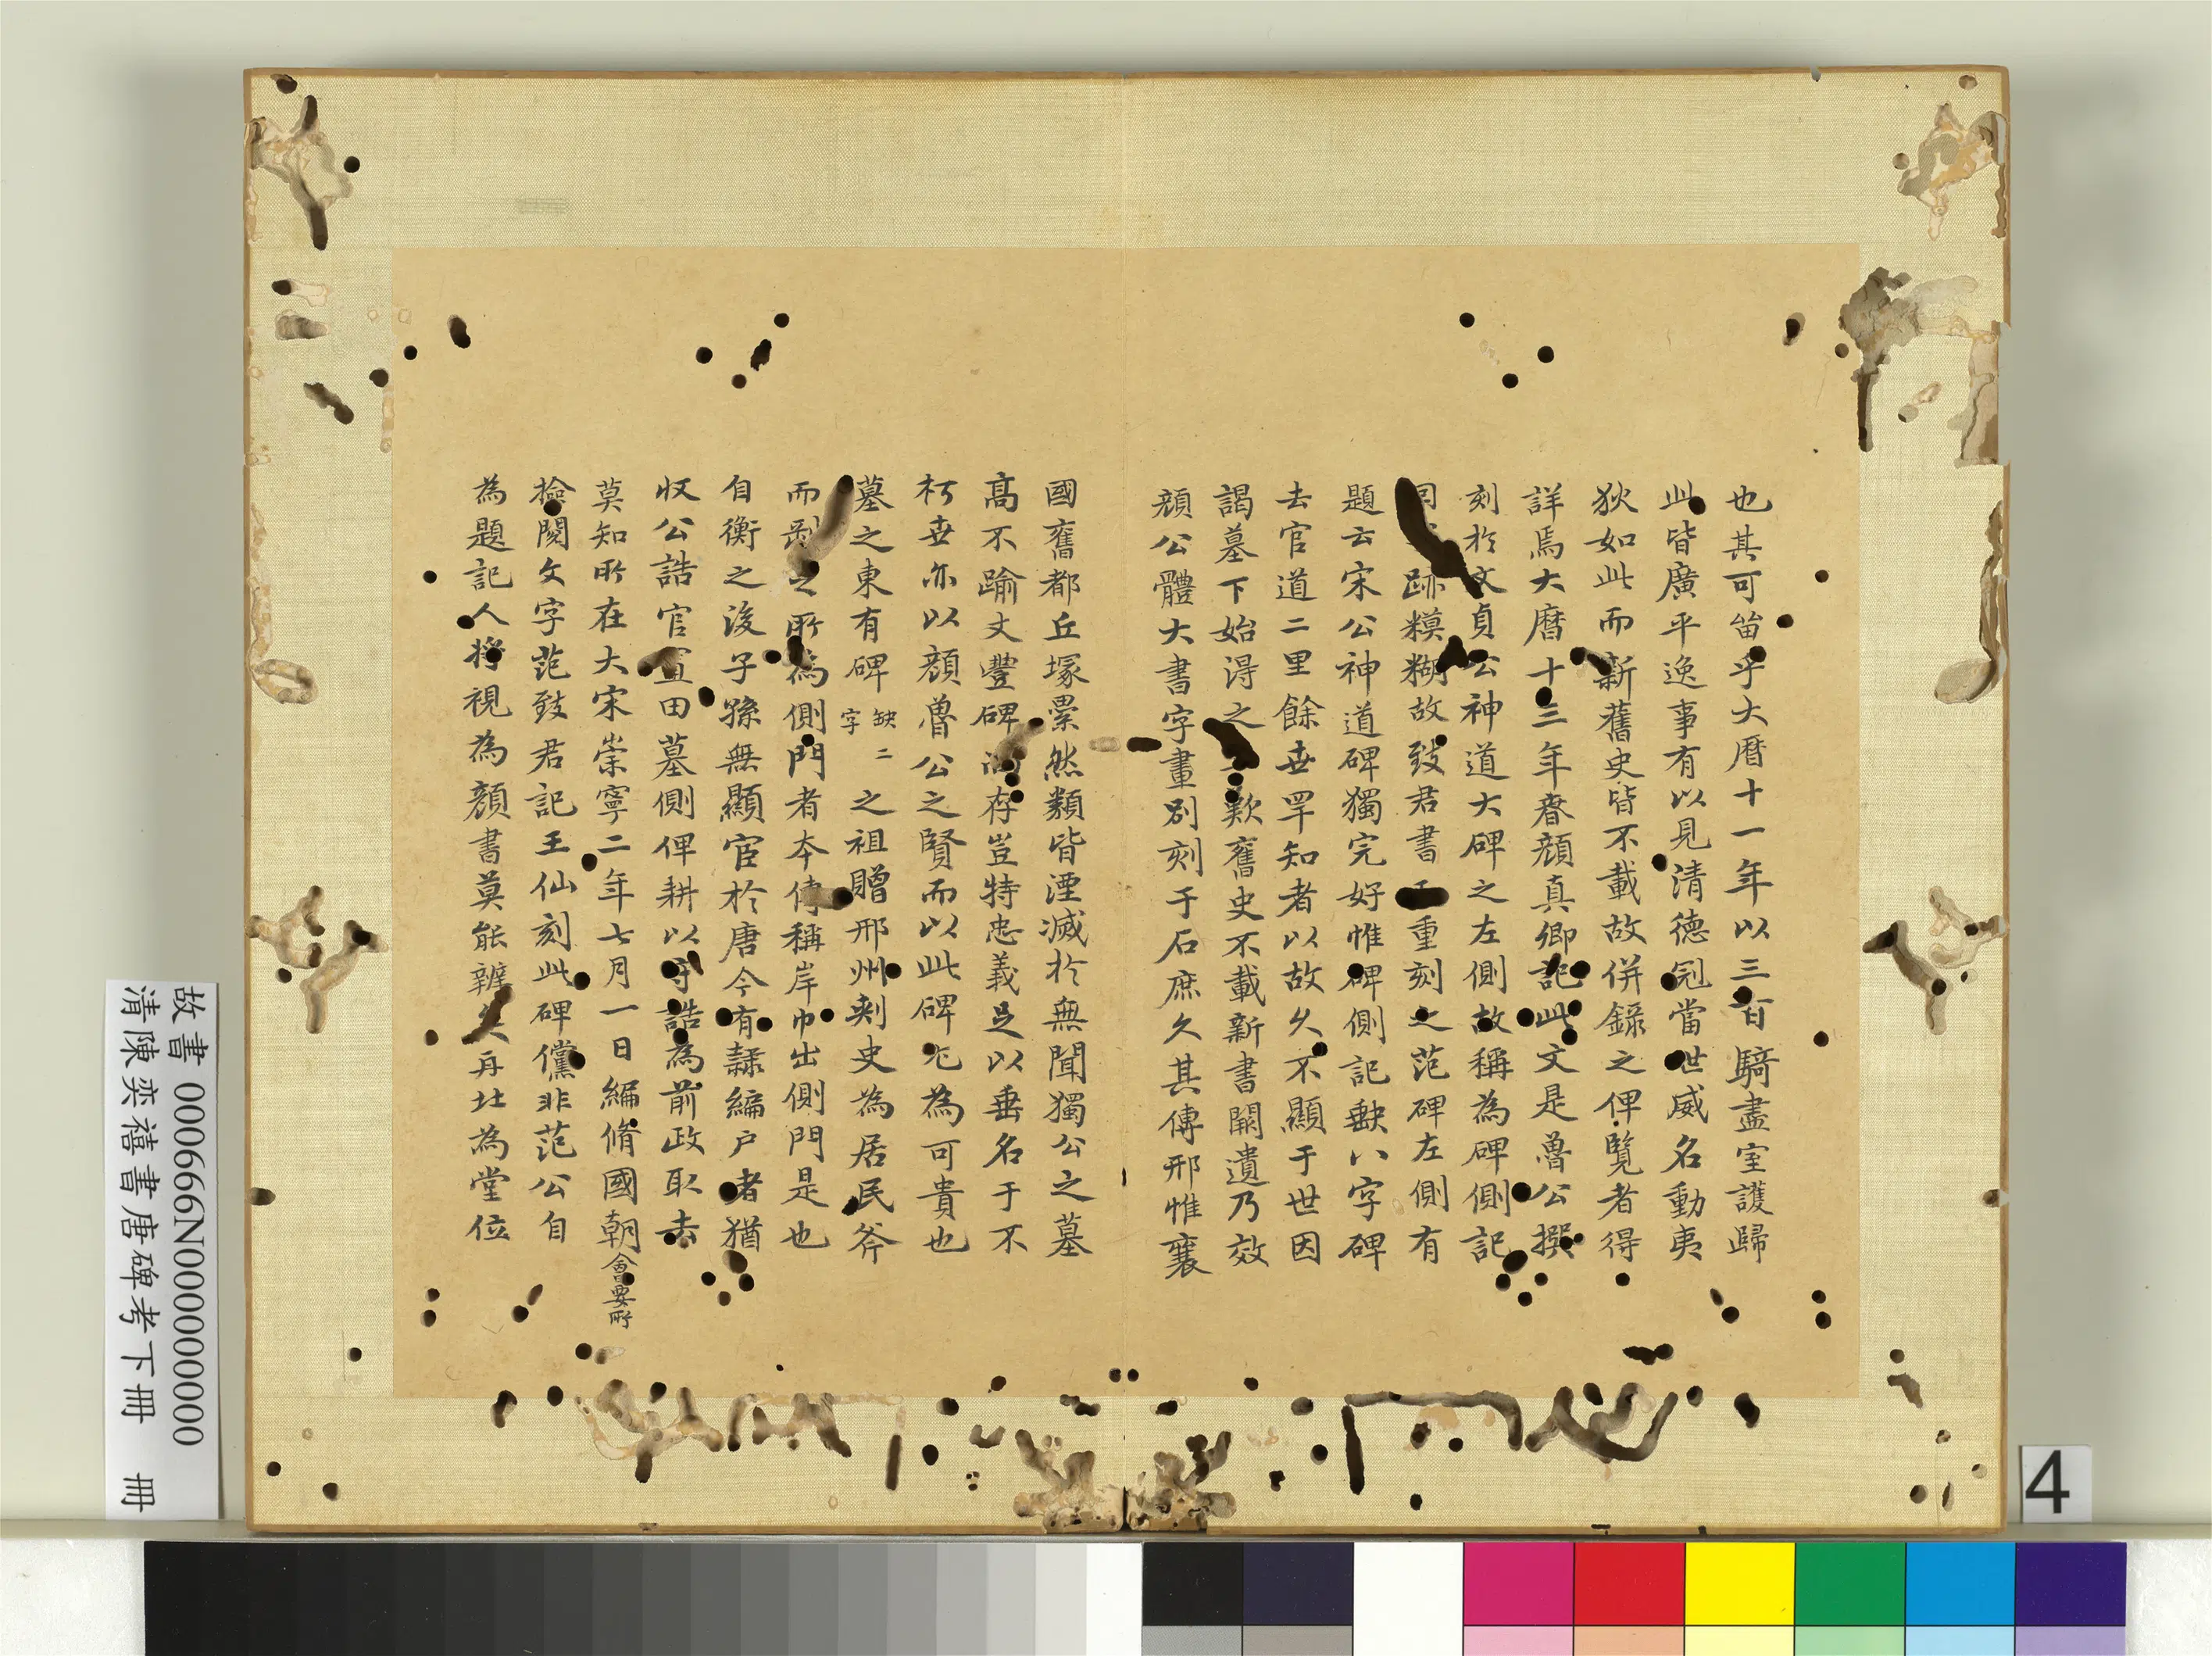 也其可笛乎大曆十一年以三百騎盡室護歸
此皆廣平逸事有以見清德冠當世威名動夷
狄如此而新舊史皆不載故併錄之俾覽者得
詳焉大曆十三年春顏真卿記此文是魯公撰
刻於文貞公神道大碑之左側故稱為碑側記
同跡糢糊故致君書重刻之范碑左側有
題云宋公神道碑獨完好惟碑側記缺八字碑
去官道二里餘世罕知者以故久不顯于世因
謁墓下始得之歎舊史不載新書闕遺乃效
顏公體大書字畫別刻于石庶久其傳邢惟襄
國舊都丘塚纍然類皆湮滅於無聞獨公之墓
高不踰丈豐碑存豈特忠義足以垂名于不
朽世亦以顏魯公之賢而以此碑尤為可貴也
墓之東有碑缺二字之祖贈邢州刺史為居民斧
而剷之所為側門者本傳稱岸巾出側門是也
自衡之後子孫無顯宦於唐今有隸編戶者猶
收公誥官宣田墓側俾耕以守誥為前政取去
莫知所在大宋崇寧二年七月一日編脩國朝會要所
撿閱文字范致君記王仙刻此碑儻非范公自
為題記人將視為顏書莫能辨矣再北為堂位
故書 000666N000000000
清陳奕禧書唐碑考下冊 冊
4